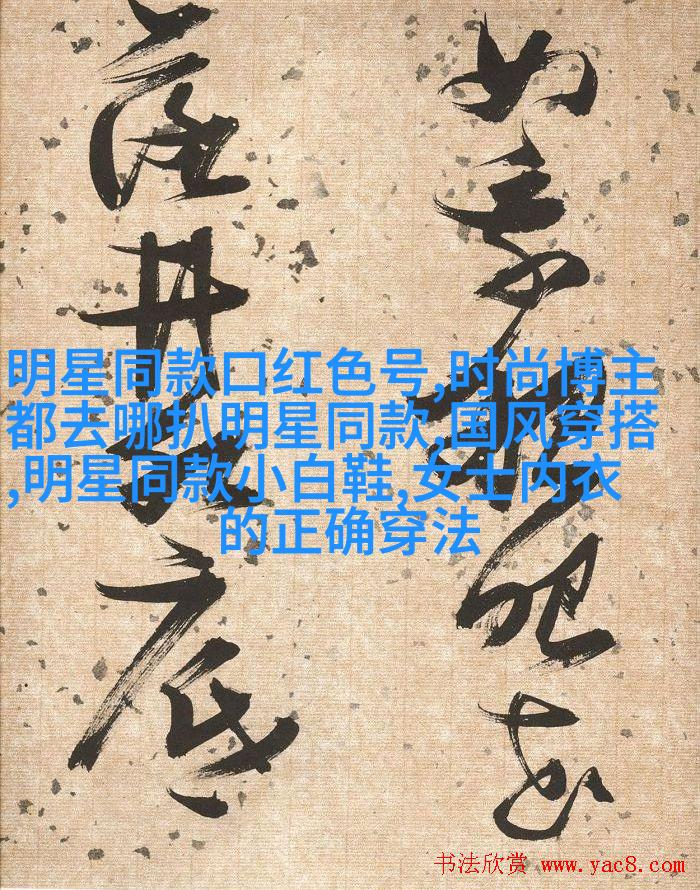 如
肥
落井
底
明星同款口红色号,时尚博主
都去哪扒明星同款,国风穿搭
,明星同款小白鞋,女士内衣
的正确穿法
书法欣赏 www.yac8.com